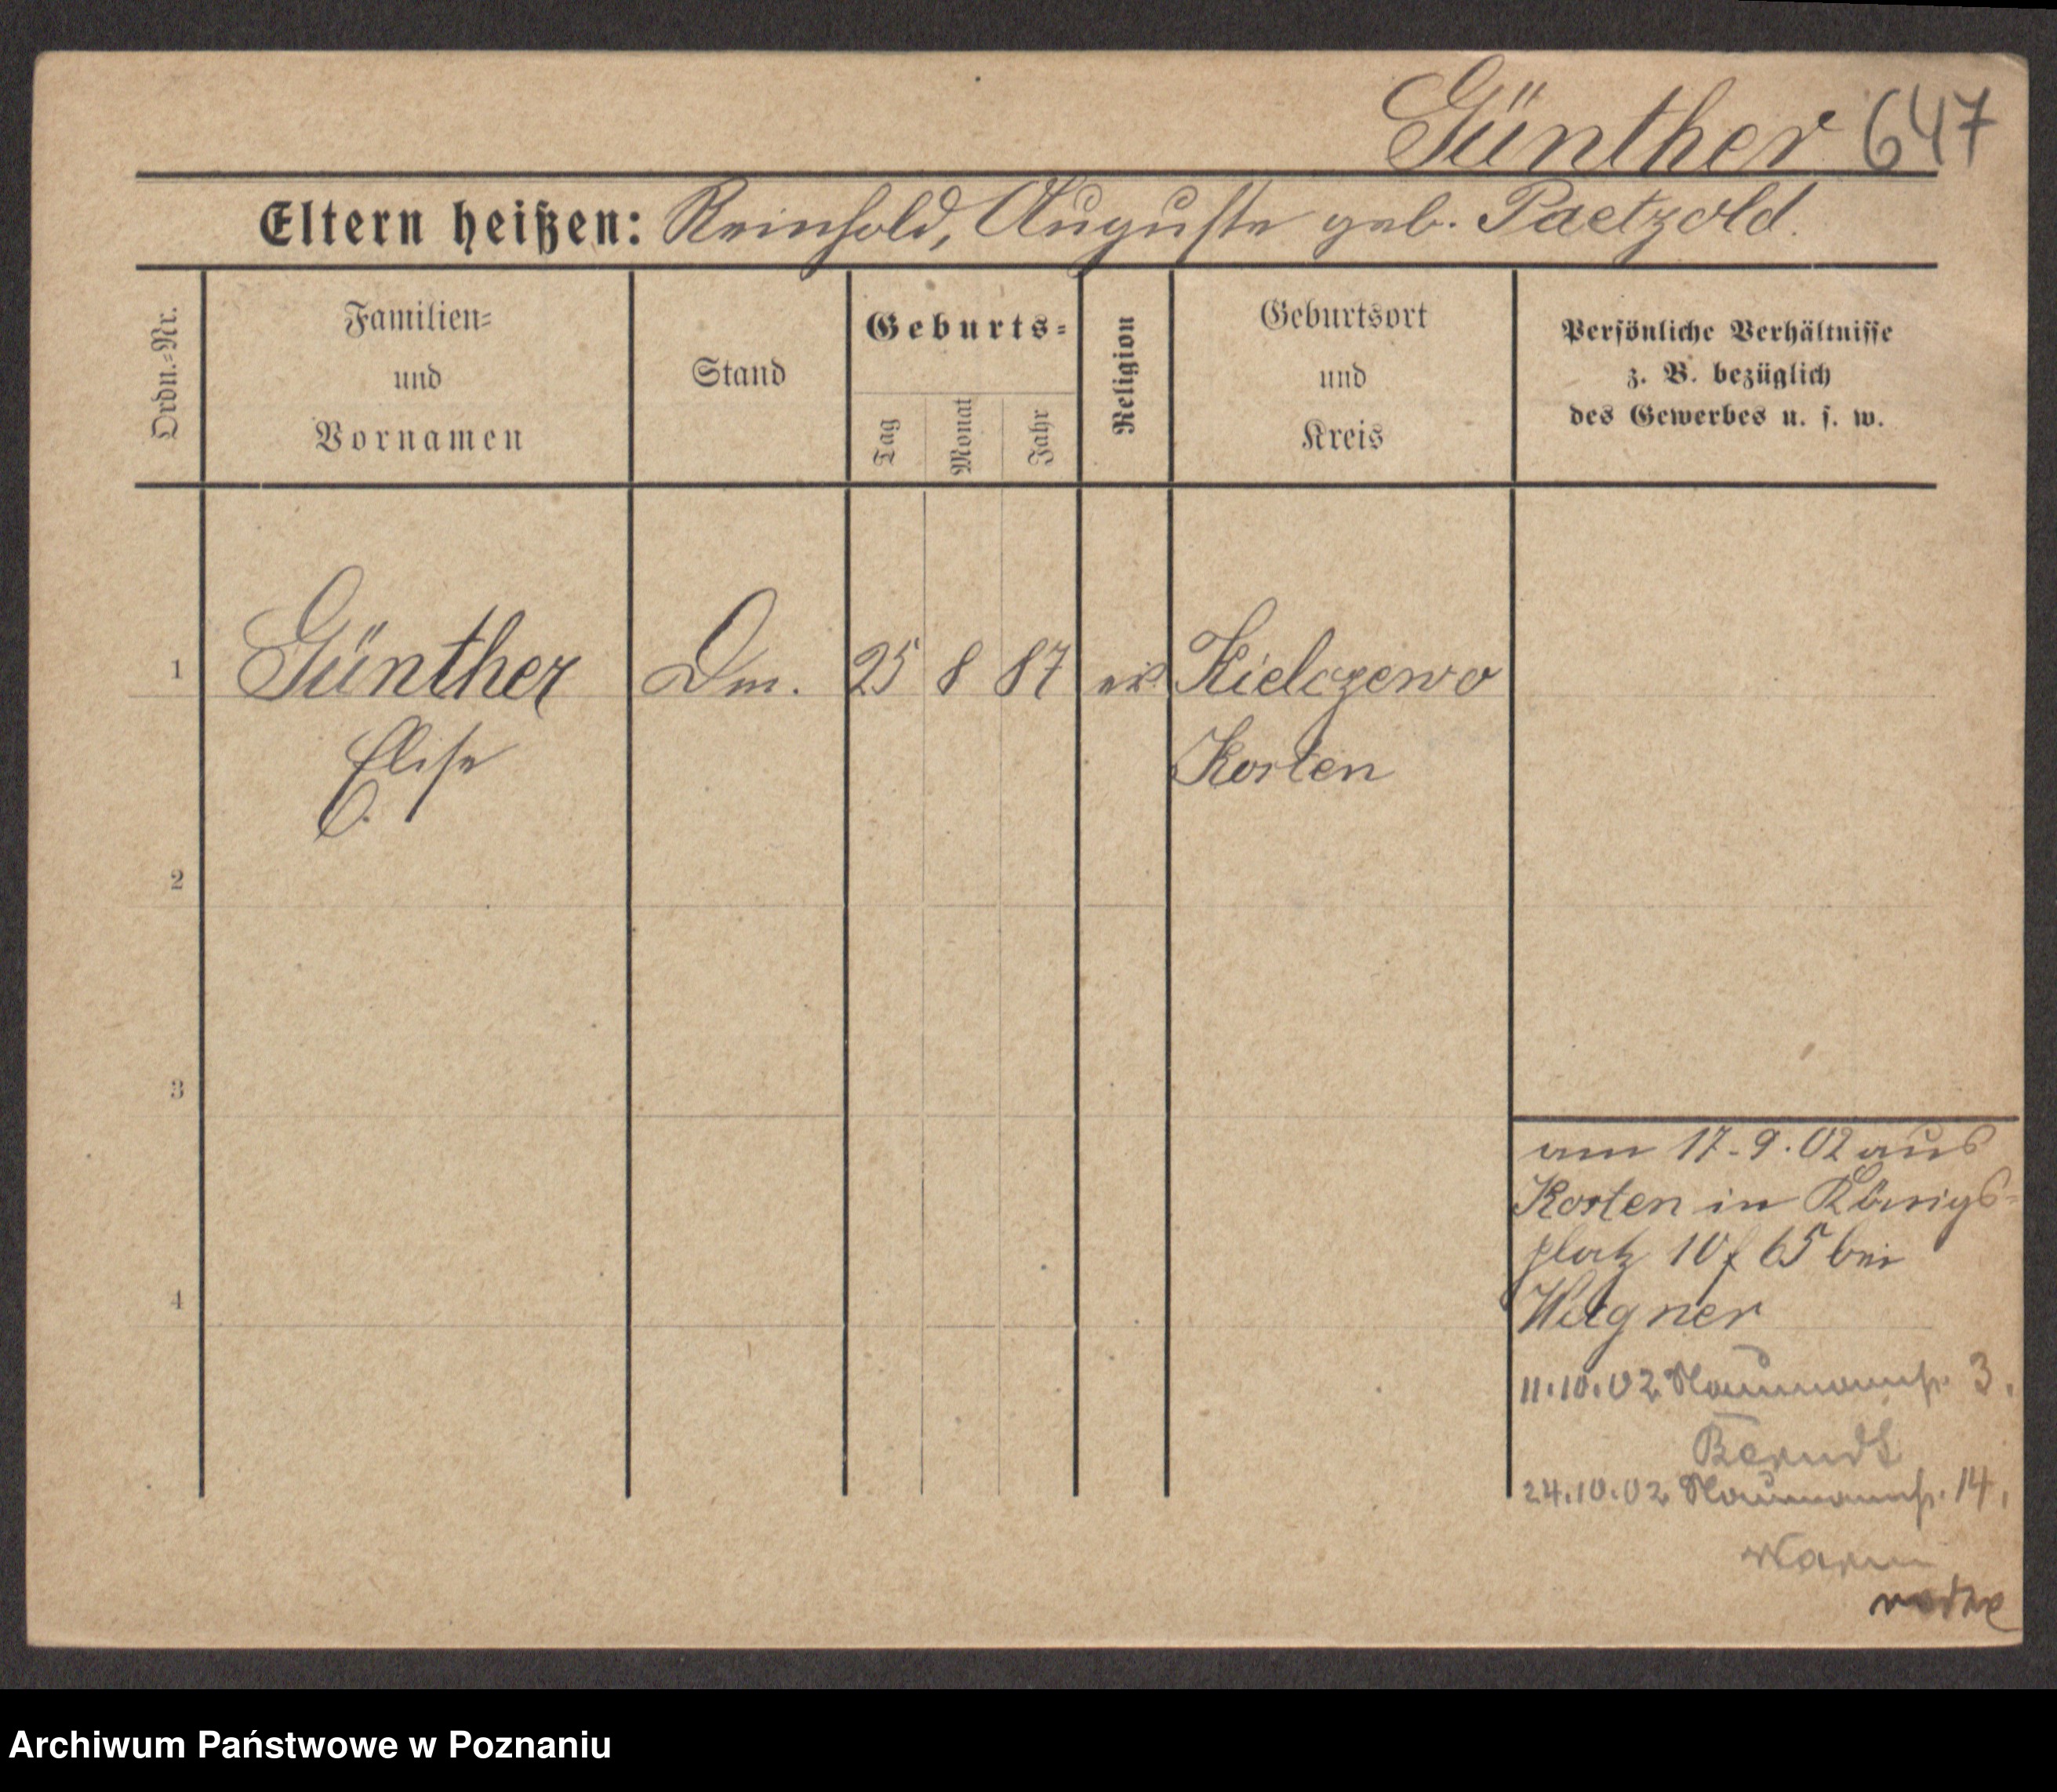 Günther 647
Eltern heißen: Reinhold, Auguste geb. Paetzold.
Ordn.-Nr.
Familien-
und
Vornamen
Stand
Geburts-
Tag
Monat
Jahr
Religion
Geburtsort
und
Kreis
Persönliche Verhältnisse
z. B. bezüglich
des Gewerbes u. s. w.
1 Günther Dm. 25 8 87 Kielczewo
Elise Kosten
2
3
4
am 17.9.02 aus
Kosten in Königs-
platz 10 f 65 bei
Wagner
11.10.02 Naumannstr. 3.
Berndt
24.10.02 Naumannstr. 14.
Archiwum Państwowe w Poznaniu